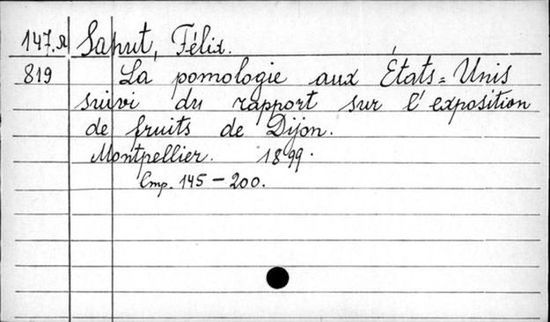 147.Я Sahut, Félix.
819 La pomologie aux États=Unis
suivi du rapport sur l'exposition
de fruits de Dijon.
Montpellier. 1899.
Стр. 145-200.